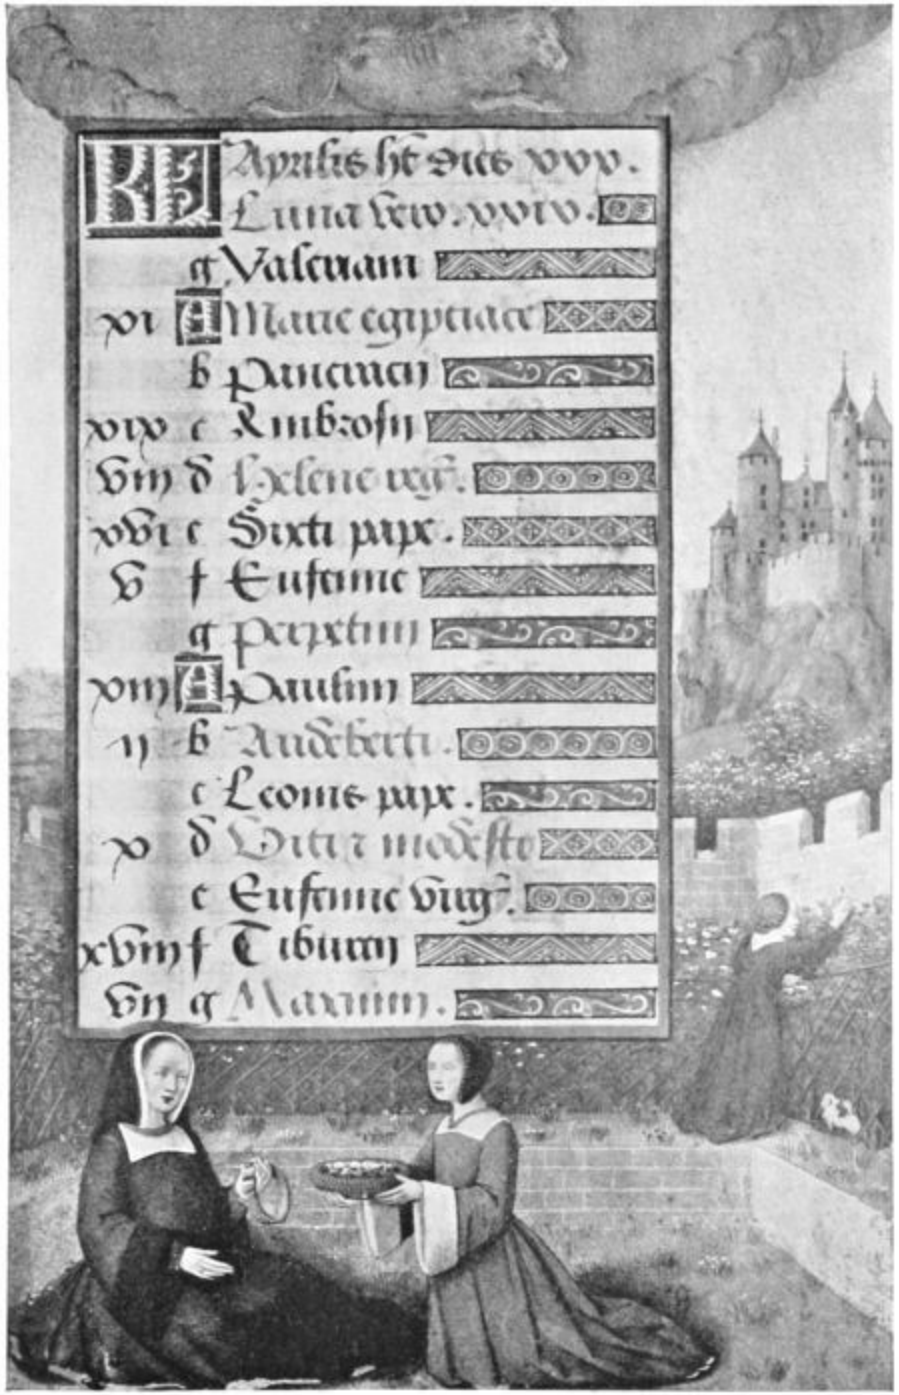 KL Aprilis ht dies xxx.
Luna vero. xxix.
g Valeriani
xi A Marie egiptiace
b Pancracii
xix c Ambrosii
viii d Helene reg.
xvi e Sixti pape.
v f Eufemie
g Perpetuii
xiii A Paulini
ii b Audeberti.
c Leonis pape.
x d Viti z modeste
e Eufemie virg.
xviii f Tiburcii
vii g Maximi.